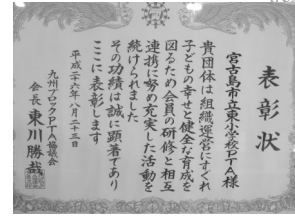 表彰状
宮古島市立東小学校PTA様
貴団体は組織運営にすぐれ
子どもの幸せと健全な育成を
図るため会員の研修と相互
連携に努め充実した活動を
続けられました
その功績は誠に顕著であり
ここに表彰します
平成二十六年八月二十三日
九州ブロックPTA協議会
会長 東川勝哉